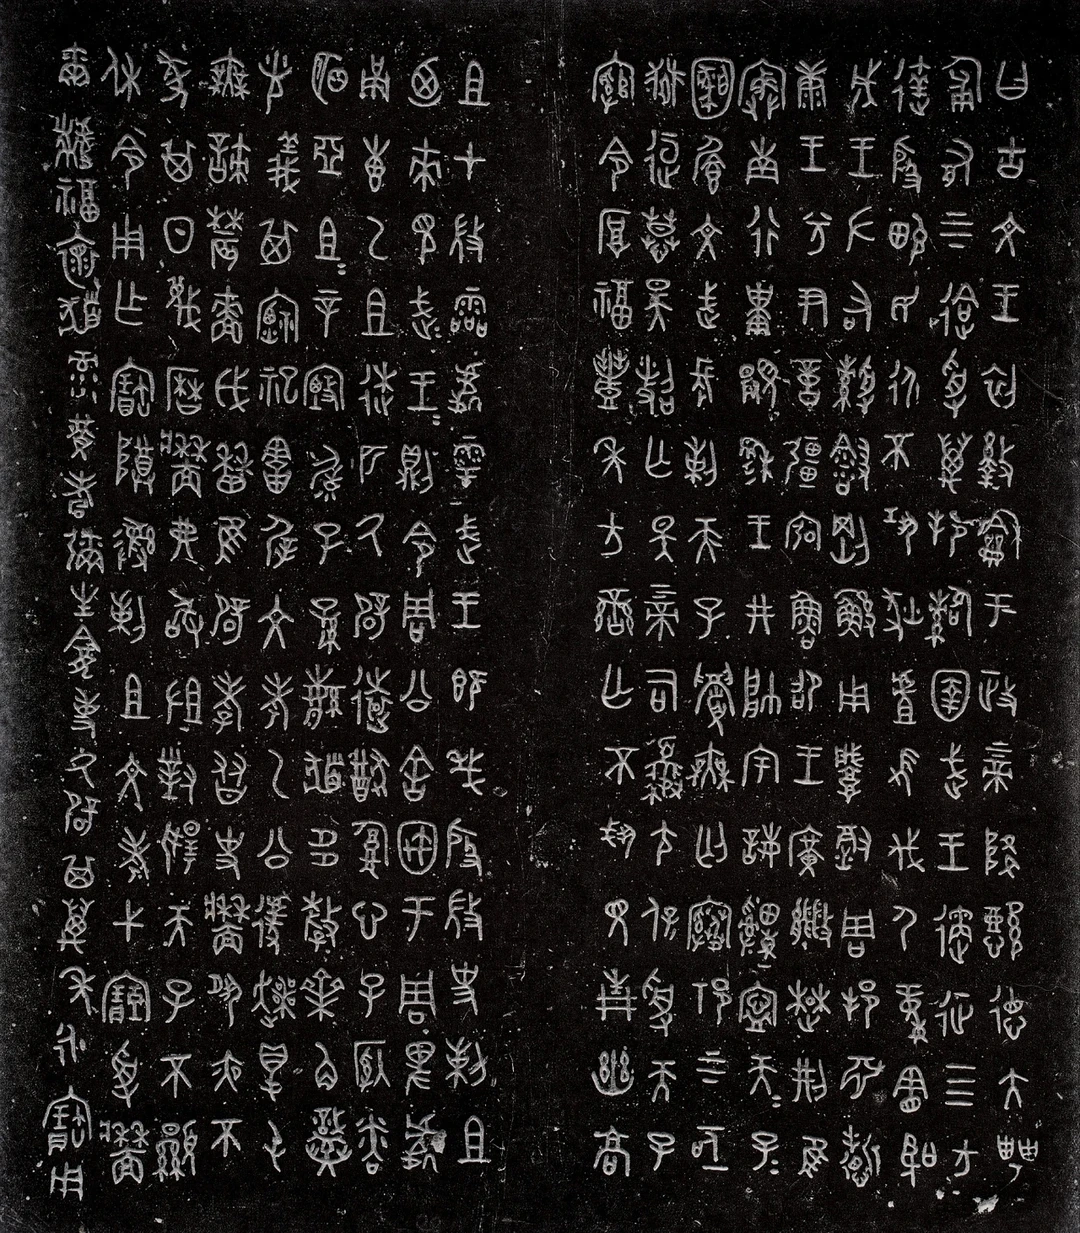 曰古文王初𢿌龢于政上帝降懿德大甹
匍有上下迨受萬邦䚄圉武王遹征四方
達殷畯民永不巩狄虘𢼸伐夷童憲聖
成王左右綬𩁹剛鯀用肇徹周邦淵哲
康王兮尹億疆弘魯昭王廣㪤楚荊隹
𡨦南行祗覭穆王井帥宇誨𤕌寧天子天子
文武長剌天子無匄祁上下亟
宣慕昊紹亡斁上帝司夒尢保受天子
綰令厚福豐年方蠻亡不見青幽高
祖才微霝處雩武王既𢦏殷微史剌祖
迺來見武王武王則令周公舍㝢于周卑處
甬惠乙祖逨匹厥辟遠猷腹心子納粦明
亞祖祖辛毓子孫繁祓多釐齊角熾光
義其禋祀害遲文考乙公遽爽得純無
諫農穡戉䅓隹辟孝友史墻夙夜不
墜其日蔑曆墻弗敢沮對揚天子不顯
休令用乍寶尊彝剌祖文考弋寶受墻
爾福懷祓彔黃耇彌生龕事厥辟其萬年永寶用